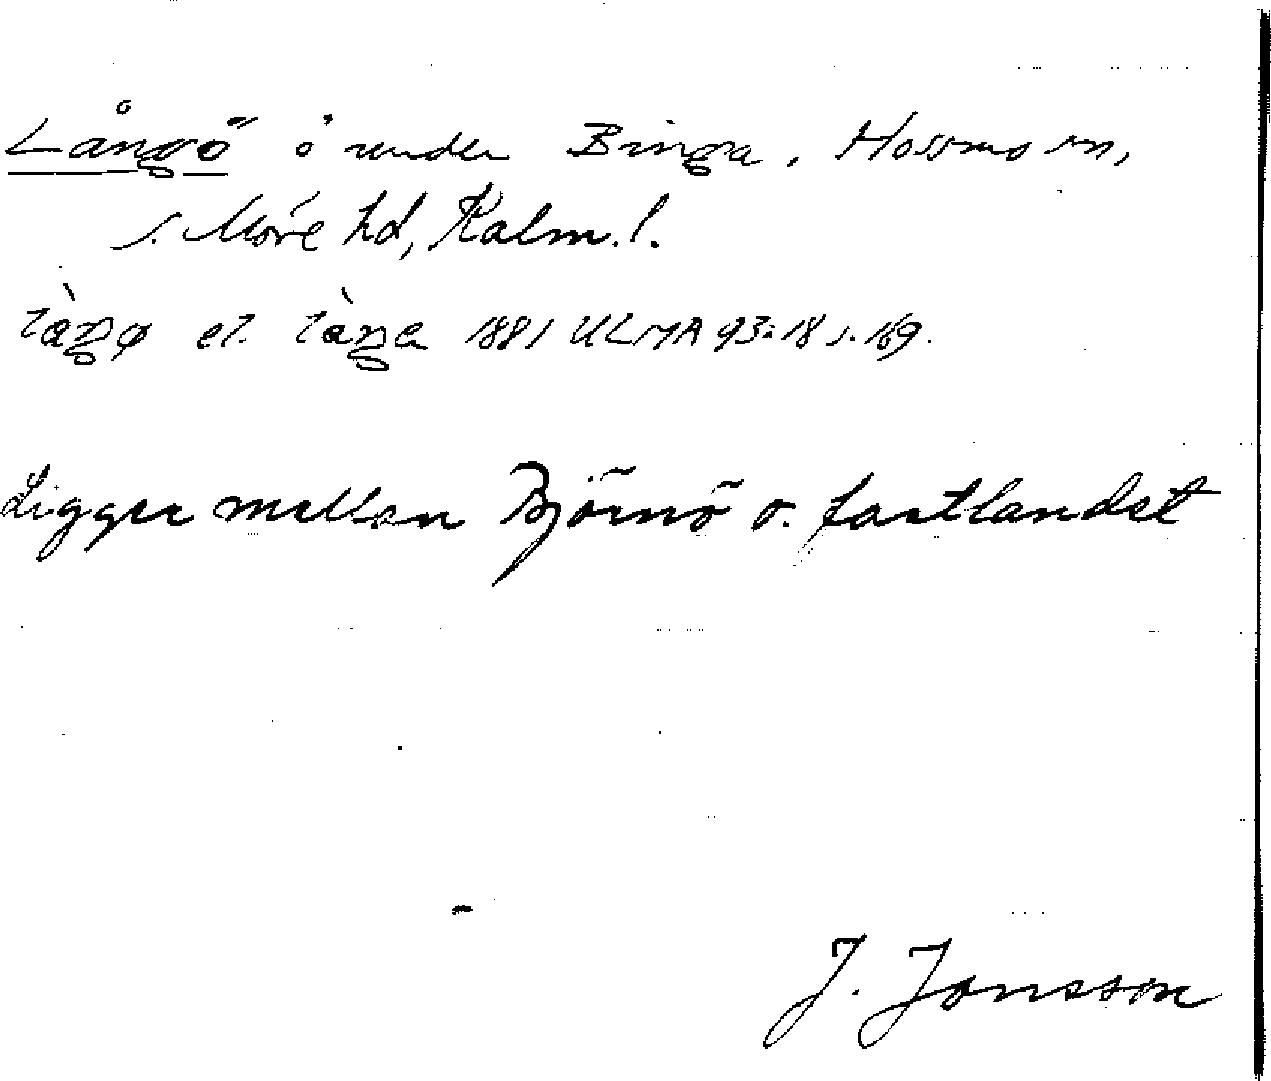 Långö ö under Binga, Hossmo sn,
s. Möre hd, Kalm. l.
el. 1881 ULMA 93:18 s. 169.
Ligger mellan Björnö o. fastlandet
J. Jonsson